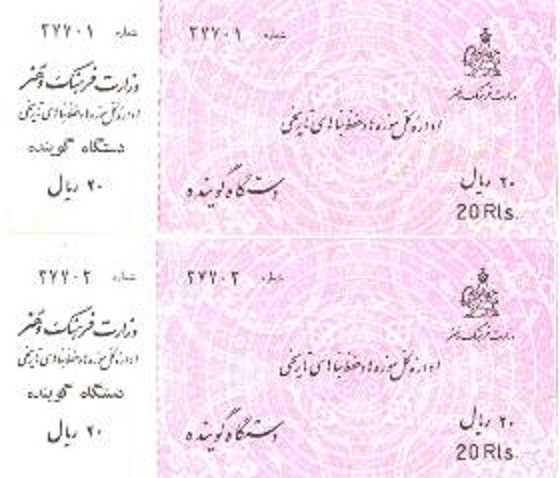 شماره ۳۷۷۰۱
وزارت فرهنگ و هنر
اداره کل موزه ها و حفظ بناهای تاریخی
دستگاه گوینده
۲۰ ریال
شماره ۳۷۷۰۱
وزارت فرهنگ و هنر
اداره کل موزه ها و حفظ بناهای تاریخی
دستگاه گوینده
۲۰ ریال
20 Rls.
شماره ۳۷۷۰۲
وزارت فرهنگ و هنر
اداره کل موزه ها و حفظ بناهای تاریخی
دستگاه گوینده
۲۰ ریال
شماره ۳۷۷۰۲
وزارت فرهنگ و هنر
اداره کل موزه ها و حفظ بناهای تاریخی
دستگاه گوینده
۲۰ ریال
20 Rls.